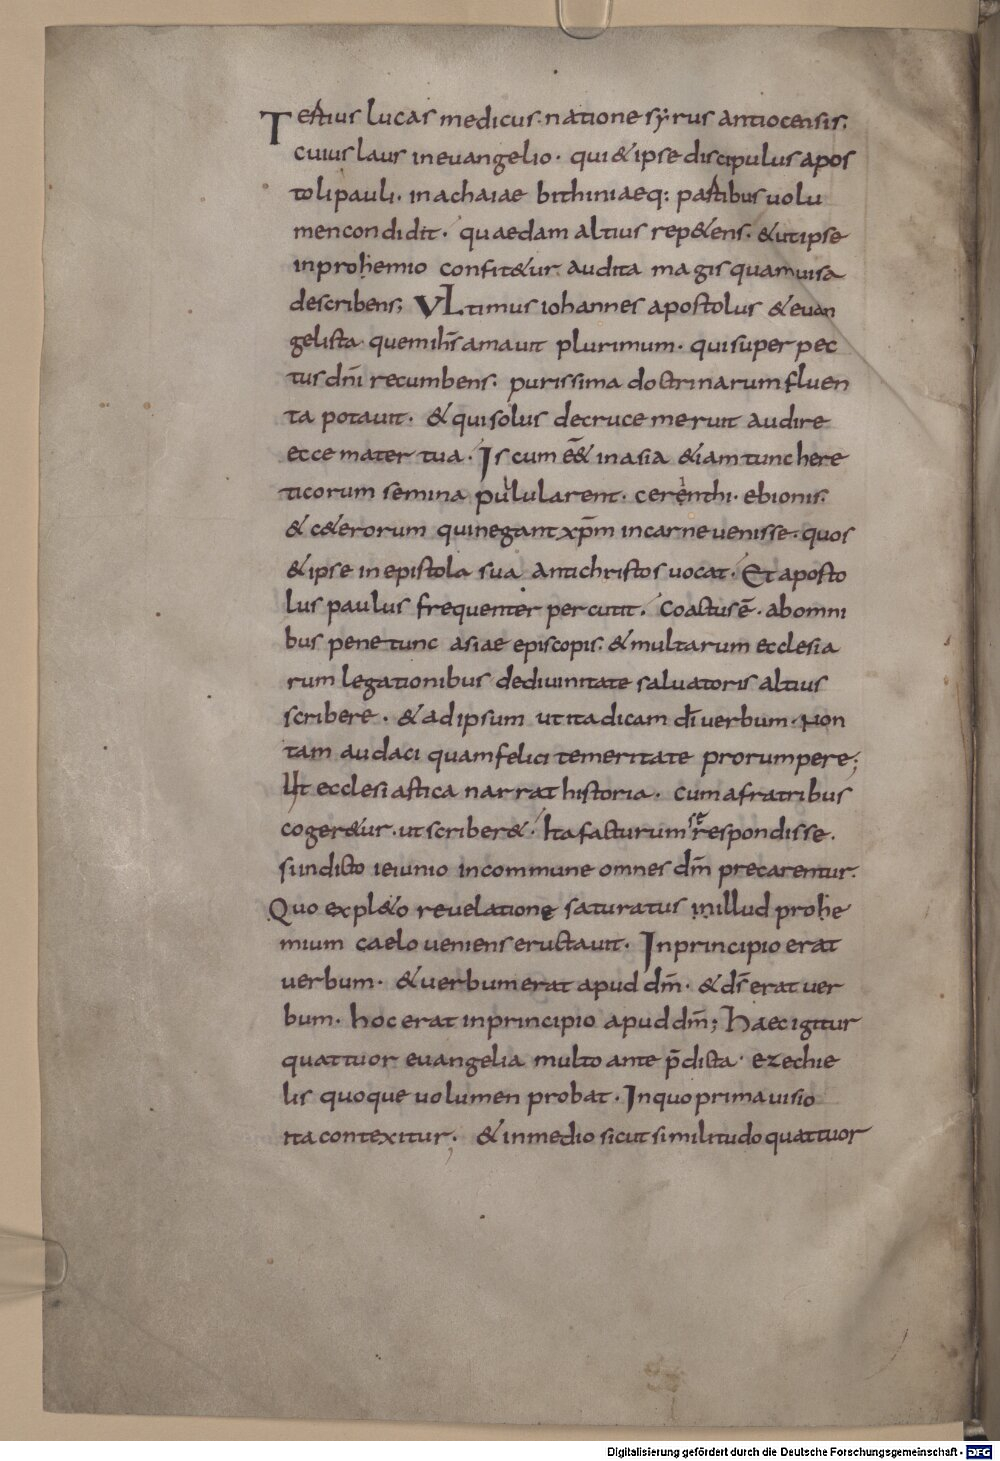 Tertius lucas medicus. natione syrus antiocensis.
cuius laus in euangelio. qui & ipse discipulus apos
toli pauli. in achaiae bithiniaeq: partibus uolu
men condidit. quaedam altius rep&ens. & ut ipse
in prohemio confit&ur audita magis quam uisa
describens; VLtimus iohannes apostolus & euan
gelista quem ih̄s amauit plurimum. qui super pec
tus dn̄i recumbens. purissima doctrinarum fluen
ta potauit. & qui solus de cruce meruit audire
ecce mater tua. Is cum ēē& in asia & iam tunc here
ticorum semina pulularent. cerenthi. ebionis.
& c&erorum qui negant xp̄m in carne uenisse. quos
& ipse in epistola sua antichristos uocat. Et aposto
lus paulus frequenter percutit. Coactus ē. ab omni
bus pene tunc asiae episcopis. & multarum ecclesia
rum legationibus de diuinitate saluatoris altius
scribere. & ad ipsum ut ita dicam dī uerbum. Non
tam audaci quam felici temeritate prorumpere;
Ut ecclesiastica narrat historia. cum a fratribus
coger&ur. ut scriber&. Ita facturum se respondisse.
si indicto ieiunio in commune omnes dm̄ precarentur.
Quo expl&o reuelatione saturatus in illud prohe
mium caelo ueniens eructauit. In principio erat
uerbum. & uerbum erat apud dm̄. & ds̄ erat uer
bum. hoc erat in principio apud dm̄; Haec igitur
quattuor euangelia multo ante p̄dicta. ezechie
lis quoque uolumen probat. In quo prima uisio
ita contexitur; & in medio sicut similitudo quattuor
Digitalisierung gefördert durch die Deutsche Forschungsgemeinschaft - DFG